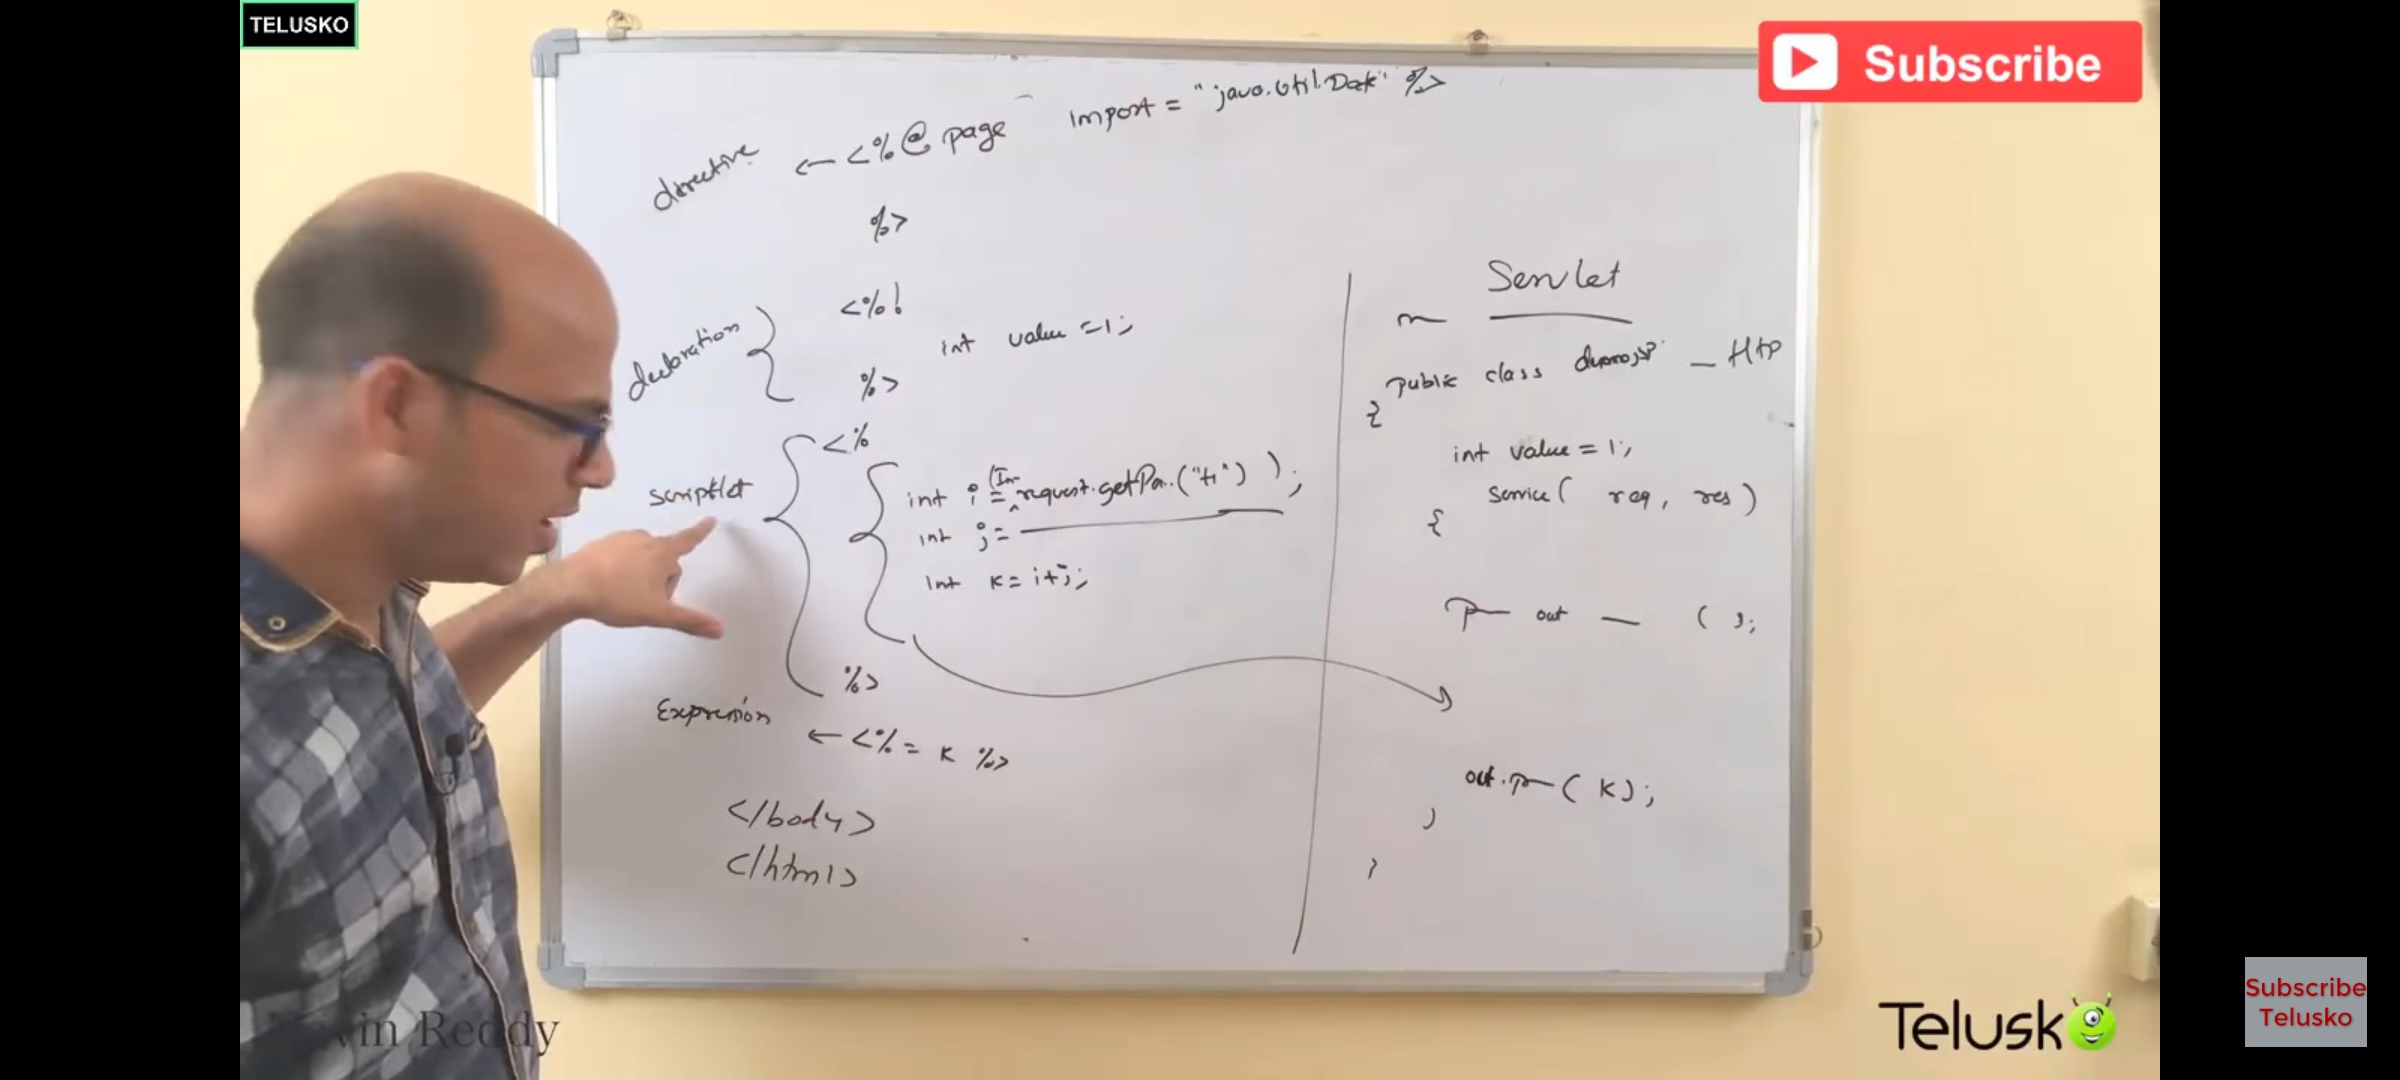 TELUSKO
Subscribe
directive ← <%@ page import = "java.util.Date" %>
%>
declaration
<%!
int value =1;
%>
scriptlet
<%
int i = (In request.getPa..("t1") );
int j =
int k = i+j;
%>
Expression
← <%= k %>
</body>
</html>
Servlet
public class demojsp — Http
{
int value = 1;
service( req, res)
{
P— out — ( );
out.p—( k);
}
}
in Reddy
Telusko
Subscribe
Telusko